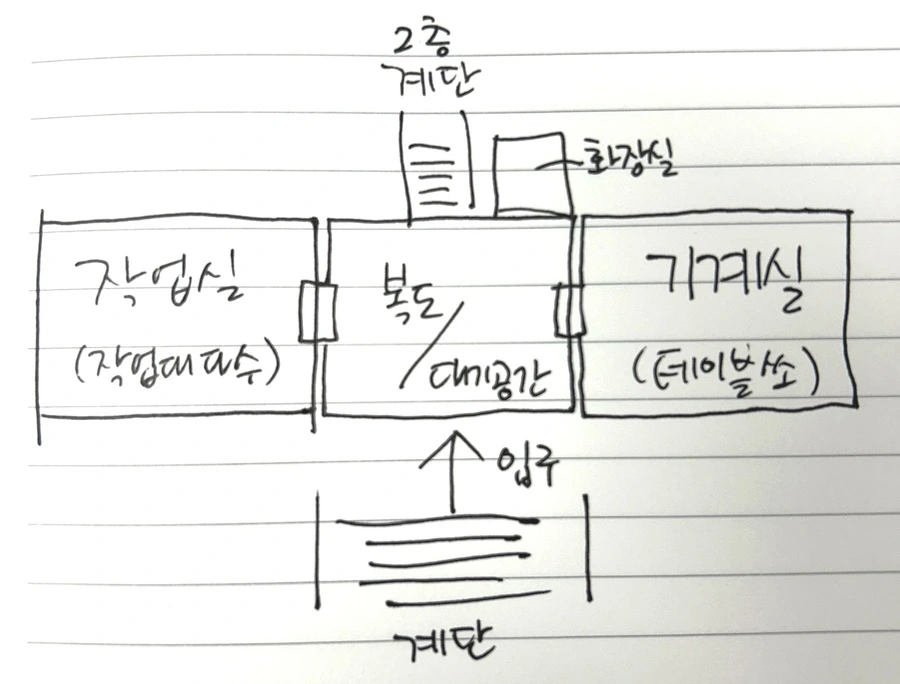 2층
계단
화장실
작업실
(작업대다수)
복도
/
대기공간
기계실
(테이블쏘)
입구
계단